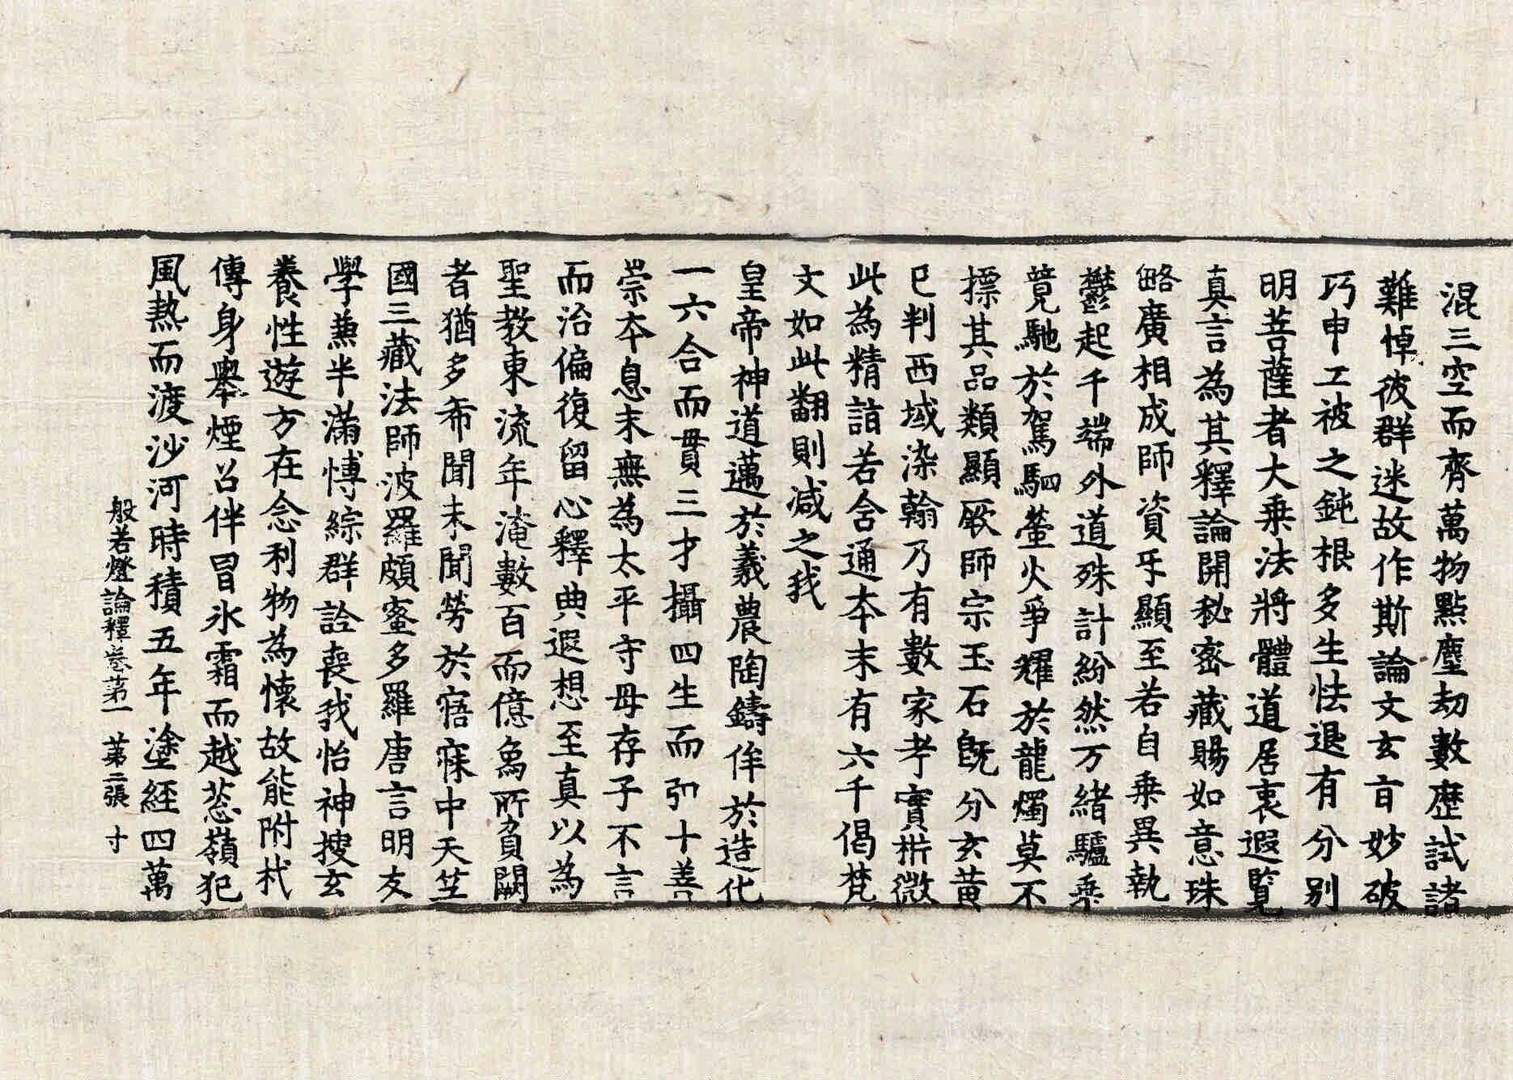 混三空而齊萬物點塵劫數歷試諸
難悼彼群迷故作斯論文玄旨妙破
巧申工被之鈍根多生怯退有分別
明菩薩者大乗法將體道居衷遐覧
真言為其釋論開秘密藏賜如意珠
略廣相成師資㸦顯至若自乗異執
鬱起千端外道殊計紛然万緒驢乗
競馳於駕駟螢火爭耀於龍燭莫不
摽其品類顯厥師宗玉石旣分玄黄
已判西域染翰乃有數家考實㭊微
此為精詣若含通本末有六千偈梵
文如此翻則减之我
皇帝神道邁於羲農陶鑄侔於造化
一六合而貫三才攝四生而弘十善
崇本息末無為太平守母存子不言
而治偏復留心釋典遐想至真以為
聖教東流年淹數百而億象所負闕
者猶多希聞未聞勞於寤寐中天竺
國三藏法師波羅頗蜜多羅唐言明友
學兼半滿愽綜群詮喪我怡神搜玄
養性遊方在念利物為懷故能附杙
傳身舉煙召伴冒氷霜而越葱嶺犯
風熱而渡沙河時積五年塗經四萬
般若燈論釋卷第一 第二張 寸